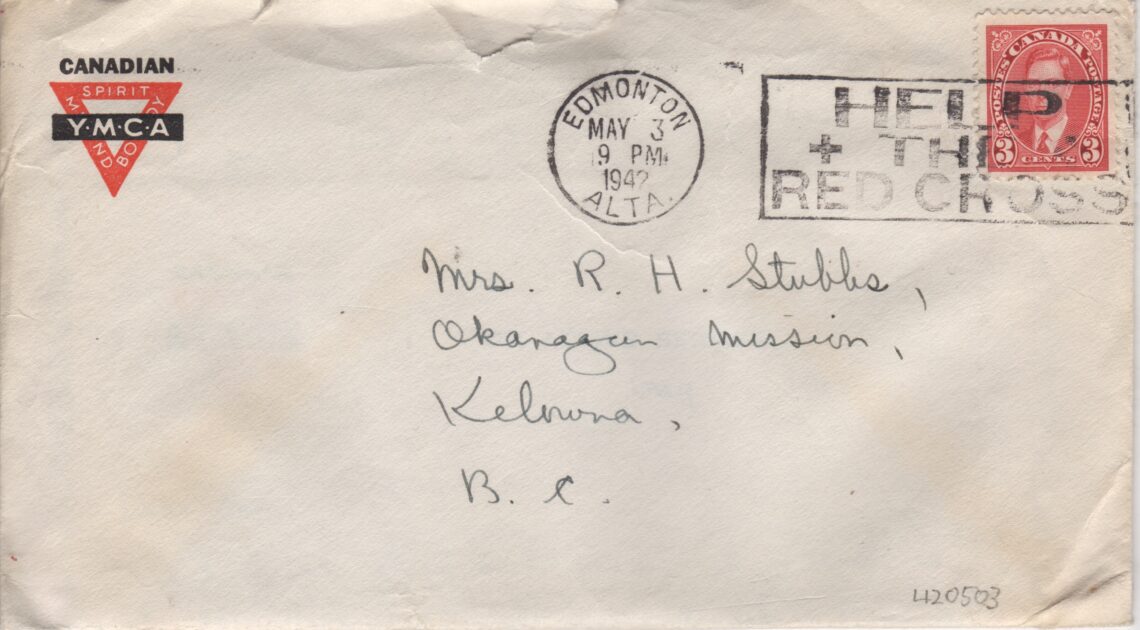 CANADIAN
SPIRIT
MIND
BODY
Y·M·C·A
EDMONTON
MAY 3
9 PM
1942
ALTA.
HELP
+ THE
RED CROSS
POSTES CANADA POSTAGE
3 CENTS 3
Mrs. R. H. Stubbs,
Okanagan Mission,
Kelowna,
B. C.
420503